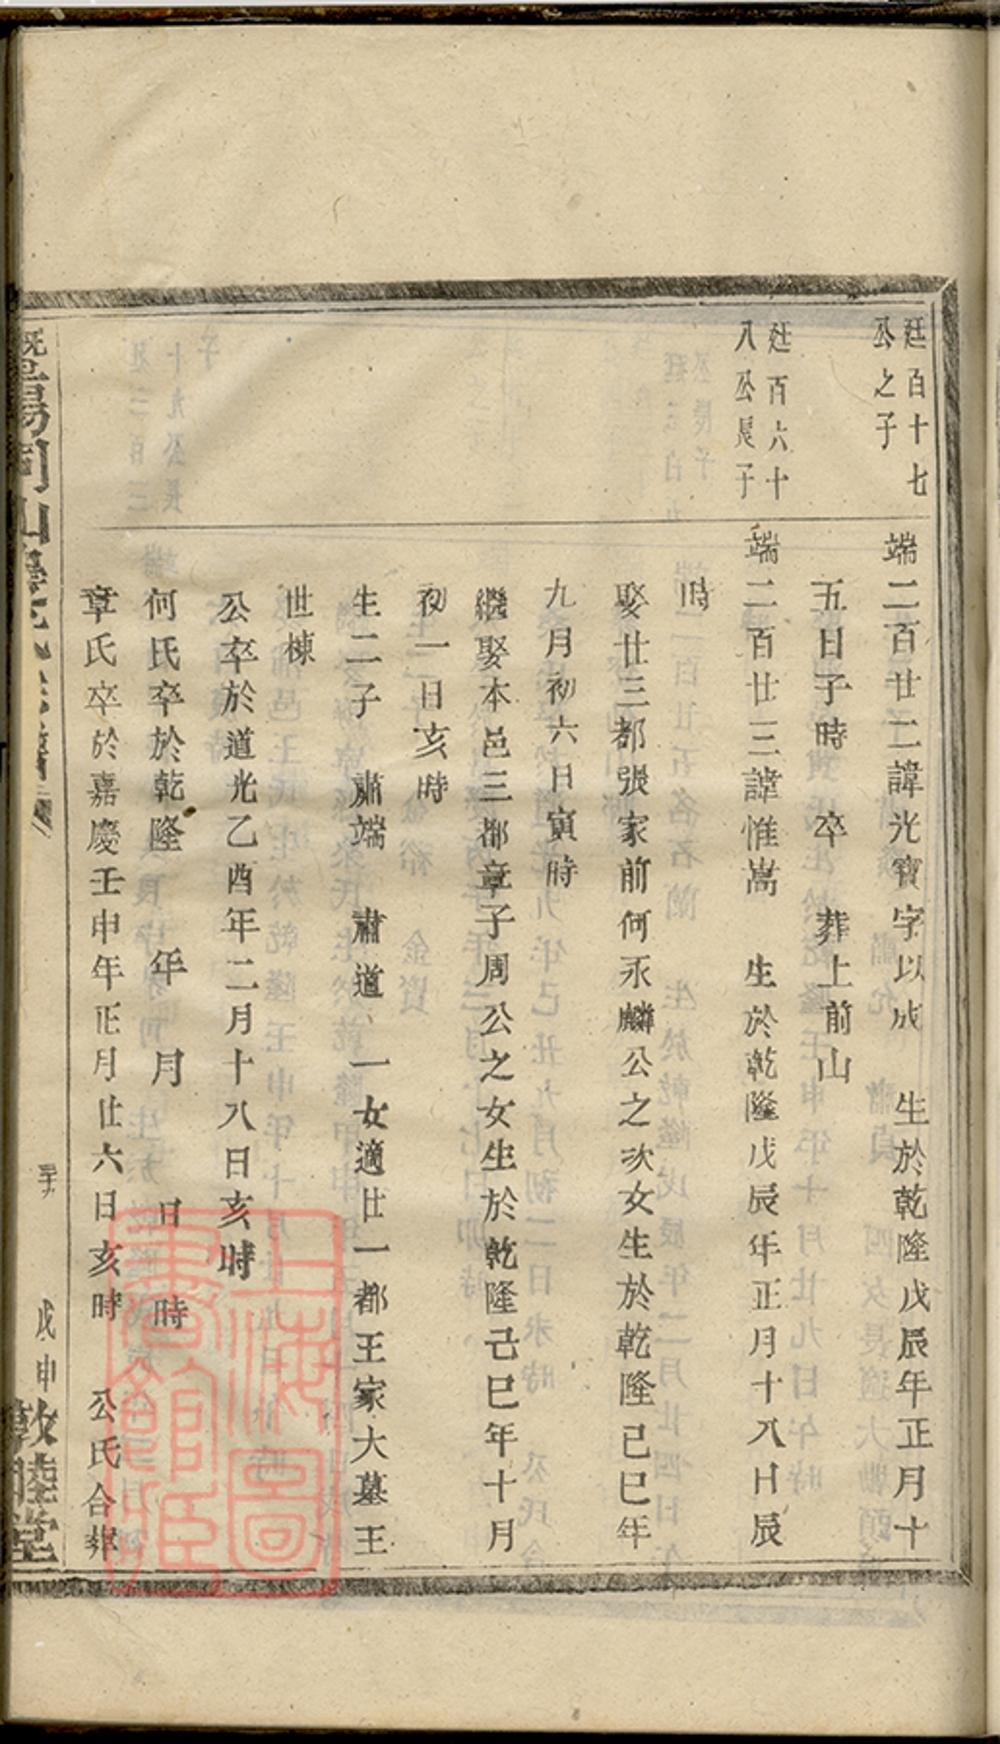 廷百十七
公之子
端二百廿二諱光寶字以成　生於乾隆戊辰年正月十
五日子時　卒　葬上前山
廷百六十
八公長子
端二百廿三諱惟嵩　生於乾隆戊辰年正月十八日辰
時
娶廿三都張家前何永麟公之次女生於乾隆己巳年
九月初六日寅時
繼娶本邑三都章子周公之女生於乾隆己巳年十月
初一日亥時
生二子　肅端　肅道　一女適廿一都王家大墓王
世棟
公卒於道光乙酉年二月十八日亥時
何氏卒於乾隆　年　月　日　時
章氏卒於嘉慶壬申年正月廿六日亥時　公氏合葬
戊申
敦睦堂
上海圖書館藏